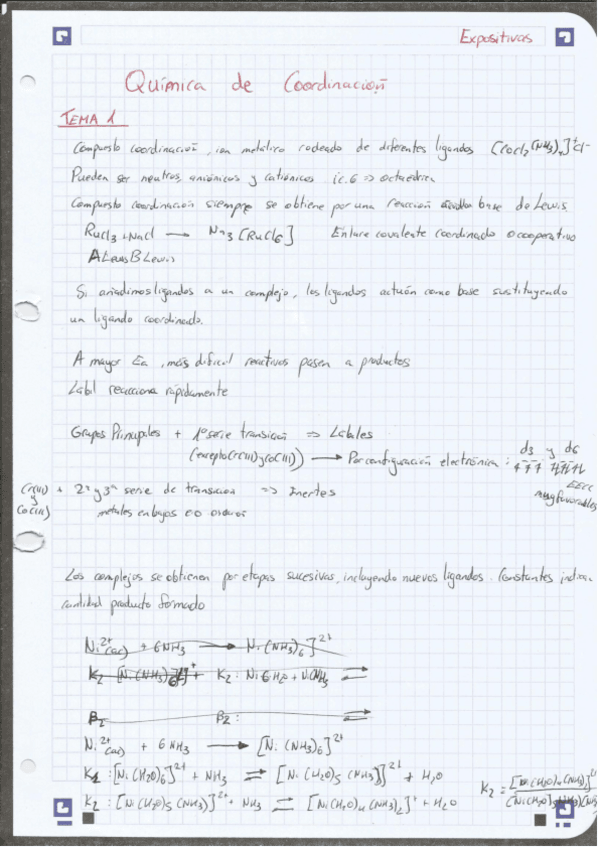 Expositivas
Química de Coordinación
TEMA 1
Compuesto coordinación, ion metálico rodeado de diferentes ligandos [CoCl2(NH3)4]+Cl-
Pueden ser neutros, aniónicos y catiónicos i.c.6 => octaédrica
Compuesto coordinación siempre se obtiene por una reacción base de Lewis.
RuCl3 + NaCl → Na3[RuCl6] Enlace covalente coordinado o cooperativo
ALewis BLewis
Si añadimos ligandos a un complejo, los ligandos actúan como base sustituyendo
un ligando coordinado.
A mayor Ea, más difícil reactivos pasen a productos
Lábil reacciona rápidamente
Grupos Principales + 1ª serie transición => Lábiles d3 y d6
(excepto Cr(III) y Co(III)) → Por configuración electrónica:
EECC
muy favorables
Cr(III) y Co(III) + 2ª y 3ª serie de transición => Inertes
metales en bajos E.O
Los complejos se obtienen por etapas sucesivas, incluyendo nuevos ligandos. Constantes indican
cantidad producto formado
Ni2+(ac) + 6NH3 → Ni(NH3)6]2+
K2 [Ni(NH3)6]2+ + K2: Ni 6H2O + NH3 ⇌
β2 β2: ⇌
Ni2+(ac) + 6NH3 → [Ni(NH3)6]2+
K1: [Ni(H2O)6]2+ + NH3 ⇌ [Ni(H2O)5(NH3)]2+ + H2O
K2: [Ni(H2O)5(NH3)]2+ + NH3 ⇌ [Ni(H2O)4(NH3)2]+ + H2O K2 = [Ni(H2O)4(NH3)2]2+ / (Ni(H2O)5NH3)(NH3